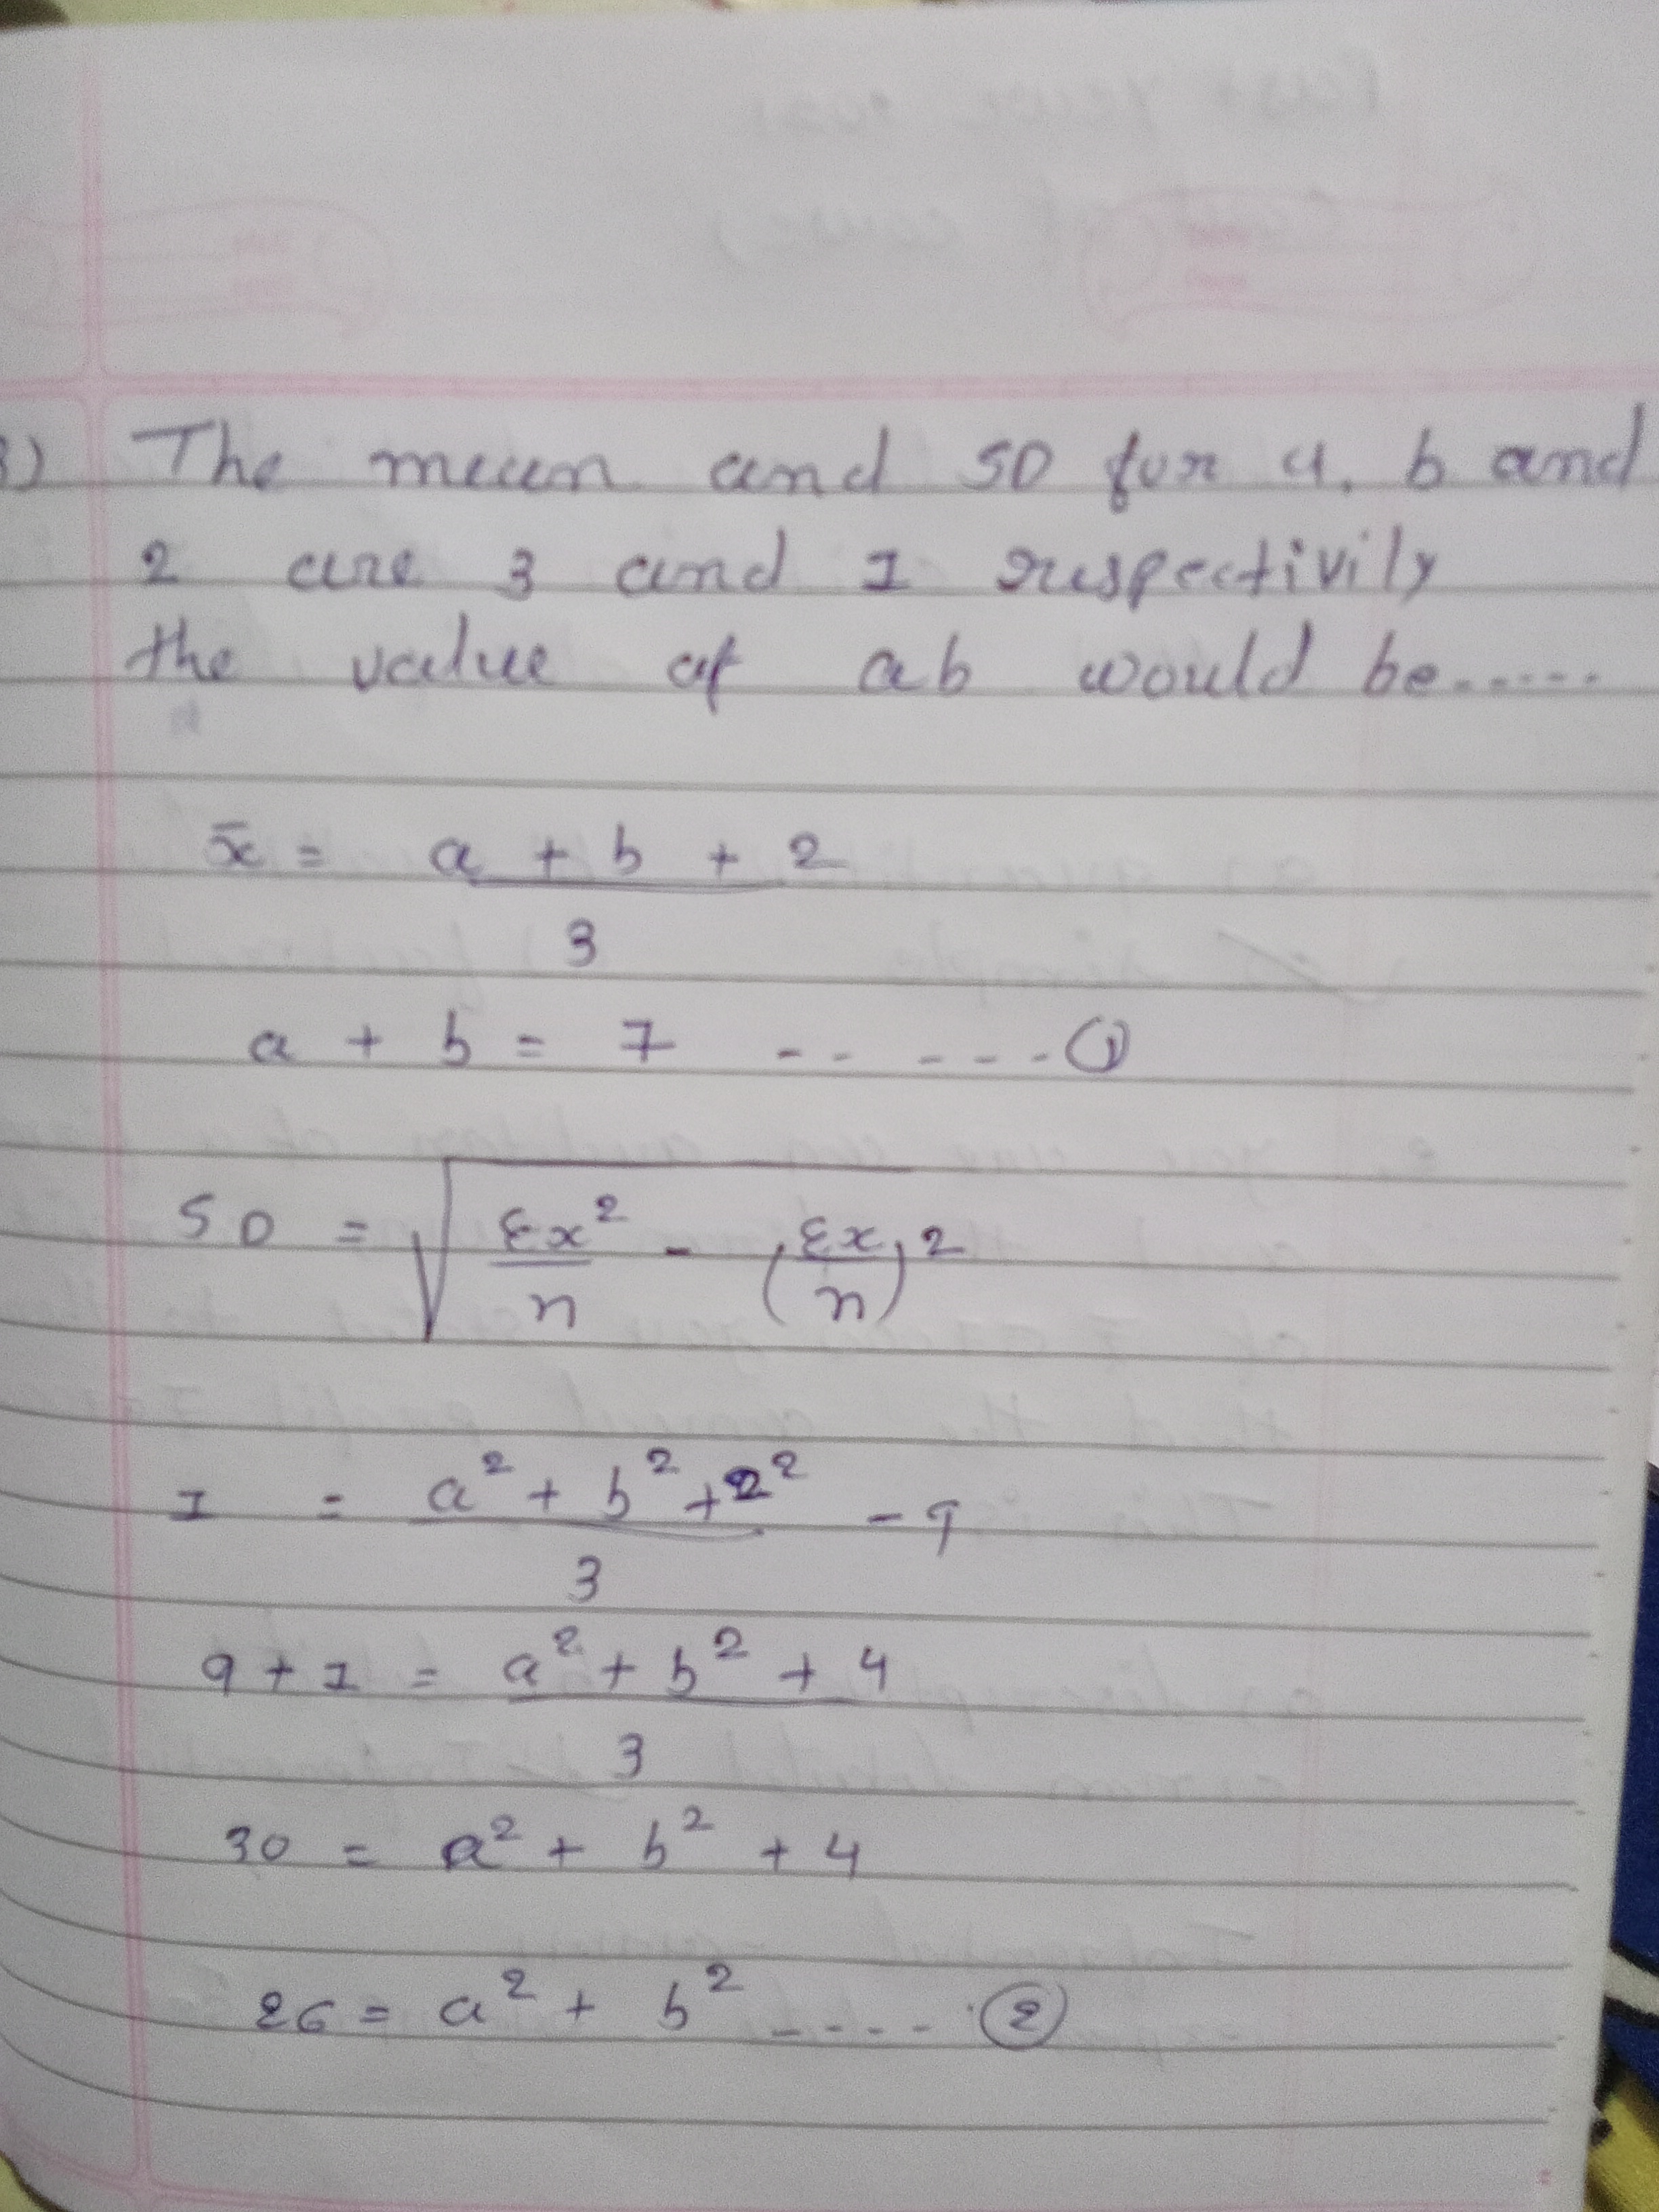 3) The mean and SD for a, b and
2 are 3 and 1 respectivily
the value of ab would be.....
x̄ = a + b + 2
3
a + b = 7 - - - - - - (1)
SD = √ Σx² / n - (Σx / n)²
1 = a² + b² + 2² / 3 - 9
9 + 1 = a² + b² + 4
3
30 = a² + b² + 4
26 = a² + b² - - - - (2)